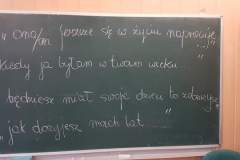 „ona/on jeszcze się w życiu napracuje
..."
Kiedy ja byłam w twoim wieku "
będziesz miał swoje dzieci to zobaczysz
„jak dożyjesz moich lat ......."